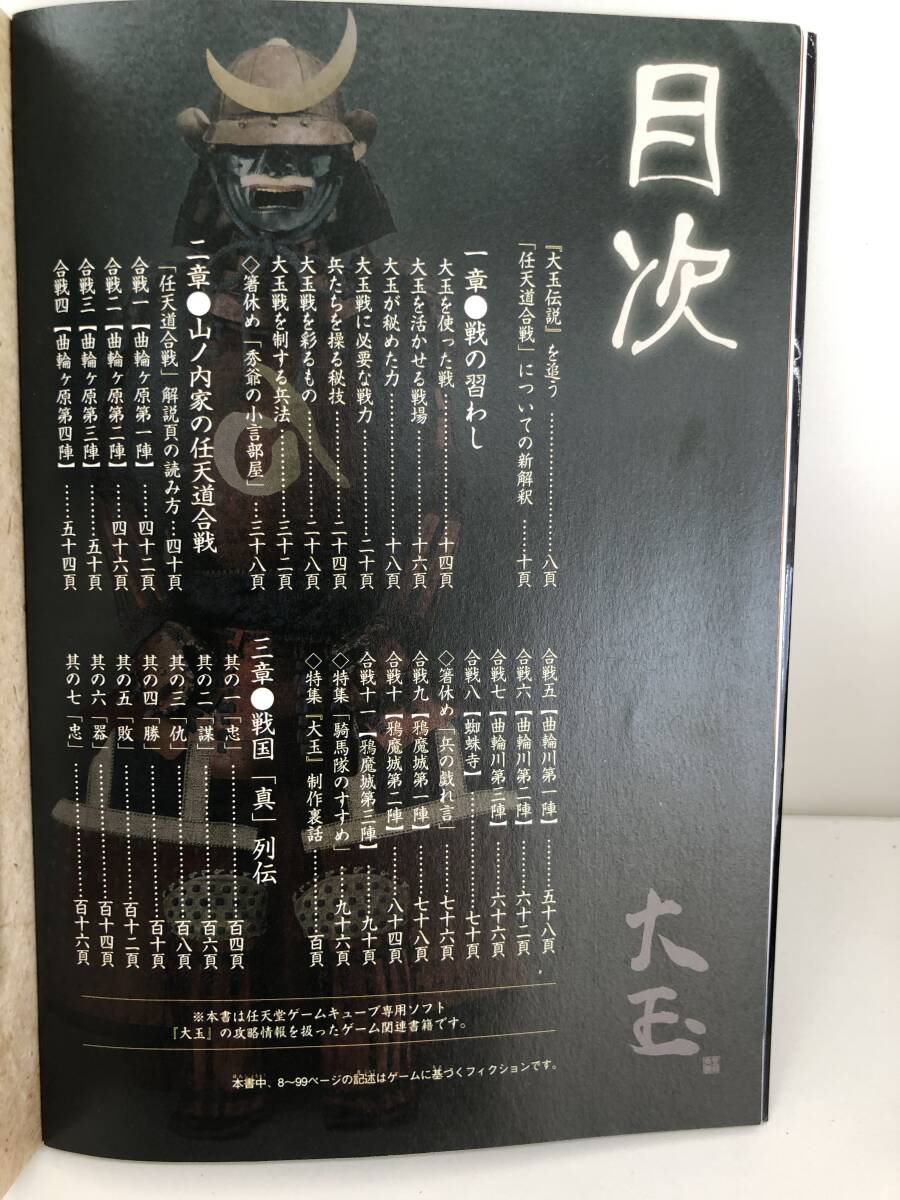 目次
『大玉伝説』を追う…………………八頁
「任天道合戦」についての新解釈……十頁
一章●戦の習わし
大玉を使った戦…………………十四頁
大玉を活かせる戦場……………十六頁
大玉が秘めた力…………………十八頁
大玉戦に必要な戦力……………二十頁
兵たちを操る秘技………………二十四頁
大玉戦を彩るもの………………二十八頁
大玉戦を制する兵法……………三十二頁
◇箸休め「秀爺の小言部屋」……三十八頁
二章●山ノ内家の任天道合戦
「任天道合戦」解説頁の読み方…四十頁
合戦一【曲輪ヶ原第一陣】……四十二頁
合戦二【曲輪ヶ原第二陣】……四十六頁
合戦三【曲輪ヶ原第三陣】……五十頁
合戦四【曲輪ヶ原第四陣】……五十四頁
合戦五【曲輪川第一陣】……五十八頁
合戦六【曲輪川第二陣】……六十二頁
合戦七【曲輪川第三陣】……六十六頁
合戦八【蜘蛛寺】……………七十頁
◇箸休め「兵の戯れ言」……七十六頁
合戦九【鴉魔城第一陣】……七十八頁
合戦十【鴉魔城第二陣】……八十四頁
合戦十一【鴉魔城第三陣】…九十頁
◇特集「騎馬隊のすすめ」…九十六頁
◇特集『大玉』制作裏話……百頁
三章●戦国「真」列伝
其の一「忠」……………百四頁
其の二「謀」……………百六頁
其の三「仇」……………百八頁
其の四「勝」……………百十頁
其の五「敗」……………百十二頁
其の六「器」……………百十四頁
其の七「忠」……………百十六頁
大玉
※本書は任天堂ゲームキューブ専用ソフト
『大玉』の攻略情報を扱ったゲーム関連書籍です。
本書中、8〜99ページの記述はゲームに基づくフィクションです。